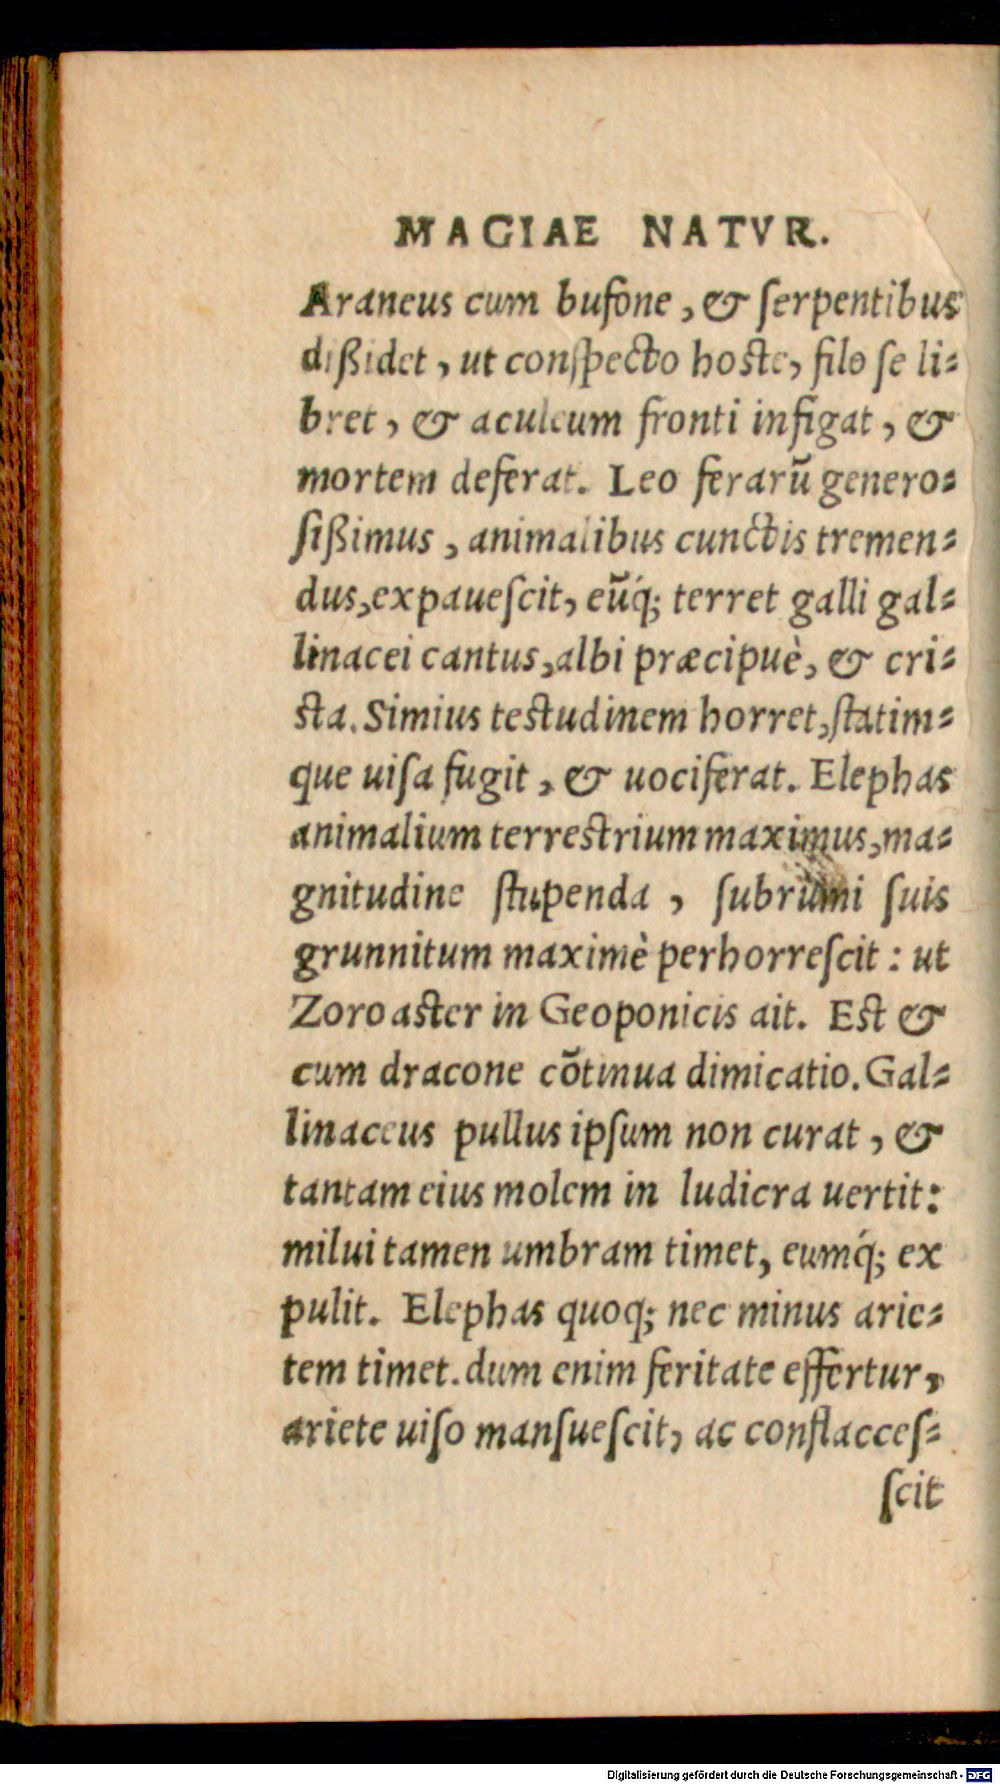 MAGIAE NATVR.
Araneus cum bufone, & ſerpentibus
dißidet, ut conſpecto hoste, filo ſe li-
bret, & aculeum fronti infigat, &
mortem deferat. Leo ferarũ genero-
ſißimus, animalibus cunctis tremen-
dus, expaueſcit, eũq́; terret galli gal-
linacei cantus, albi præcipuè, & cri-
sta. Simius testudinem horret, ſtatim-
que uiſa fugit, & uociferat. Elephas
animalium terrestrium maximus, ma-
gnitudine ſtupenda, ſubrumi ſuis
grunnitum maximè perhorreſcit: ut
Zoroaster in Geoponicis ait. Est &
cum dracone cõtinua dimicatio. Gal-
linaceus pullus ipſum non curat, &
tantam eius molem in ludicra uertit:
milui tamen umbram timet, eumq́; ex
pulit. Elephas quoq; nec minus arie-
tem timet. dum enim feritate effertur,
ariete uiſo manſueſcit, ac conflacceſ-
ſcit
Digitalisierung gefördert durch die Deutsche Forschungsgemeinschaft - DFG